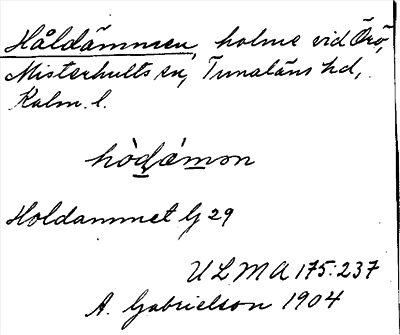 Håldämmen, holme vid Örö,
Misterhults sn, Tunaläns hd,
Kalm. l.
hòd́ǽmən
Holdammet G 29
ULMA 175:237
A. Gabrielson 1904